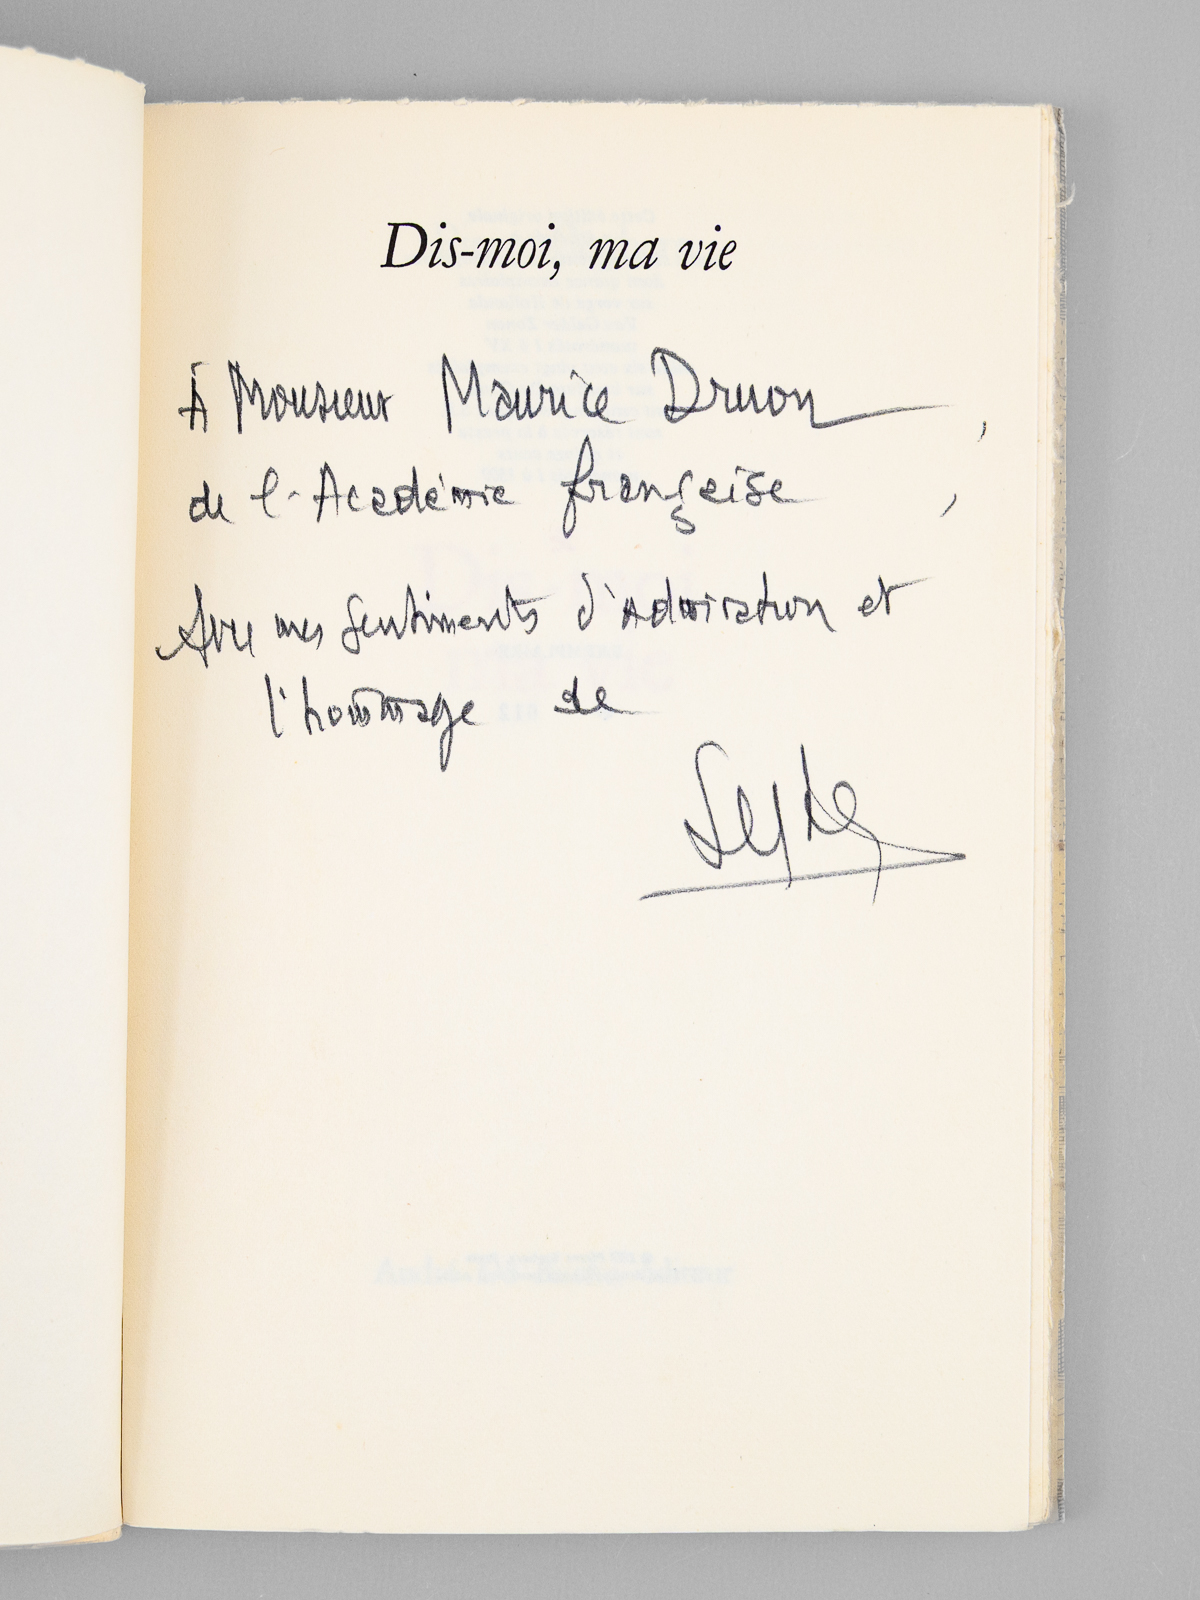 Dis-moi, ma vie
À Monsieur Maurice Druon,
de l'Académie française,
Avec mes sentiments d'admiration et
l'hommage de